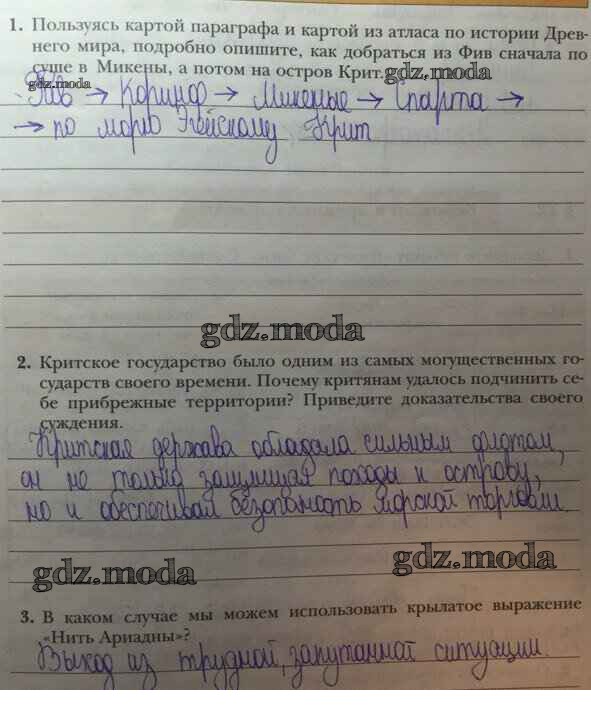 1. Пользуясь картой параграфа и картой из атласа по истории Древ-
него мира, подробно опишите, как добраться из Фив сначала по
суше в Микены, а потом на остров Крит.
gdz.moda
Фив → Коринф → Микены → Спарта →
→ по морю Эгейскому Крит
gdz.moda
2. Критское государство было одним из самых могущественных го-
сударств своего времени. Почему критянам удалось подчинить се-
бе прибрежные территории? Приведите доказательства своего
суждения.
Критская держава обладала сильным флотом,
он не только защищал походы к острову,
но и обеспечивал безопасность морской торговли.
gdz.moda
gdz.moda
3. В каком случае мы можем использовать крылатое выражение
«Нить Ариадны»?
Выход из трудной, запутанной ситуации.